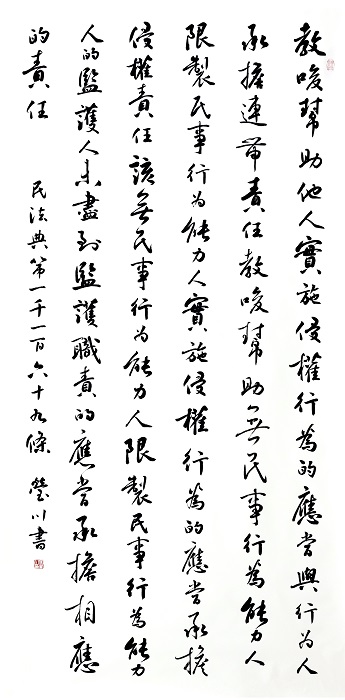 教唆幫助他人實施侵權行爲的應當與行为人
承擔連帶責任教唆幫助无民事行爲能力人
限製民事行为能力人實施侵權行爲的應當承擔
侵權責任該无民事行为能力人限製民事行爲能力
人的監護人未盡到監護職責的應當承擔相應
的責任
民法典第一千一百六十九條 瑩川書